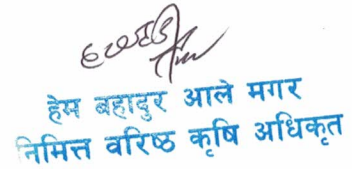 हेम बहादुर आले मगर
निमित्त वरिष्ठ कृषि अधिकृत